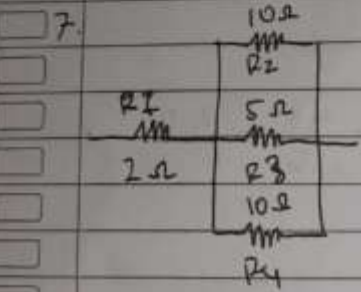 7.
10Ω
R2
R1
5Ω
2Ω
R3
10Ω
R4